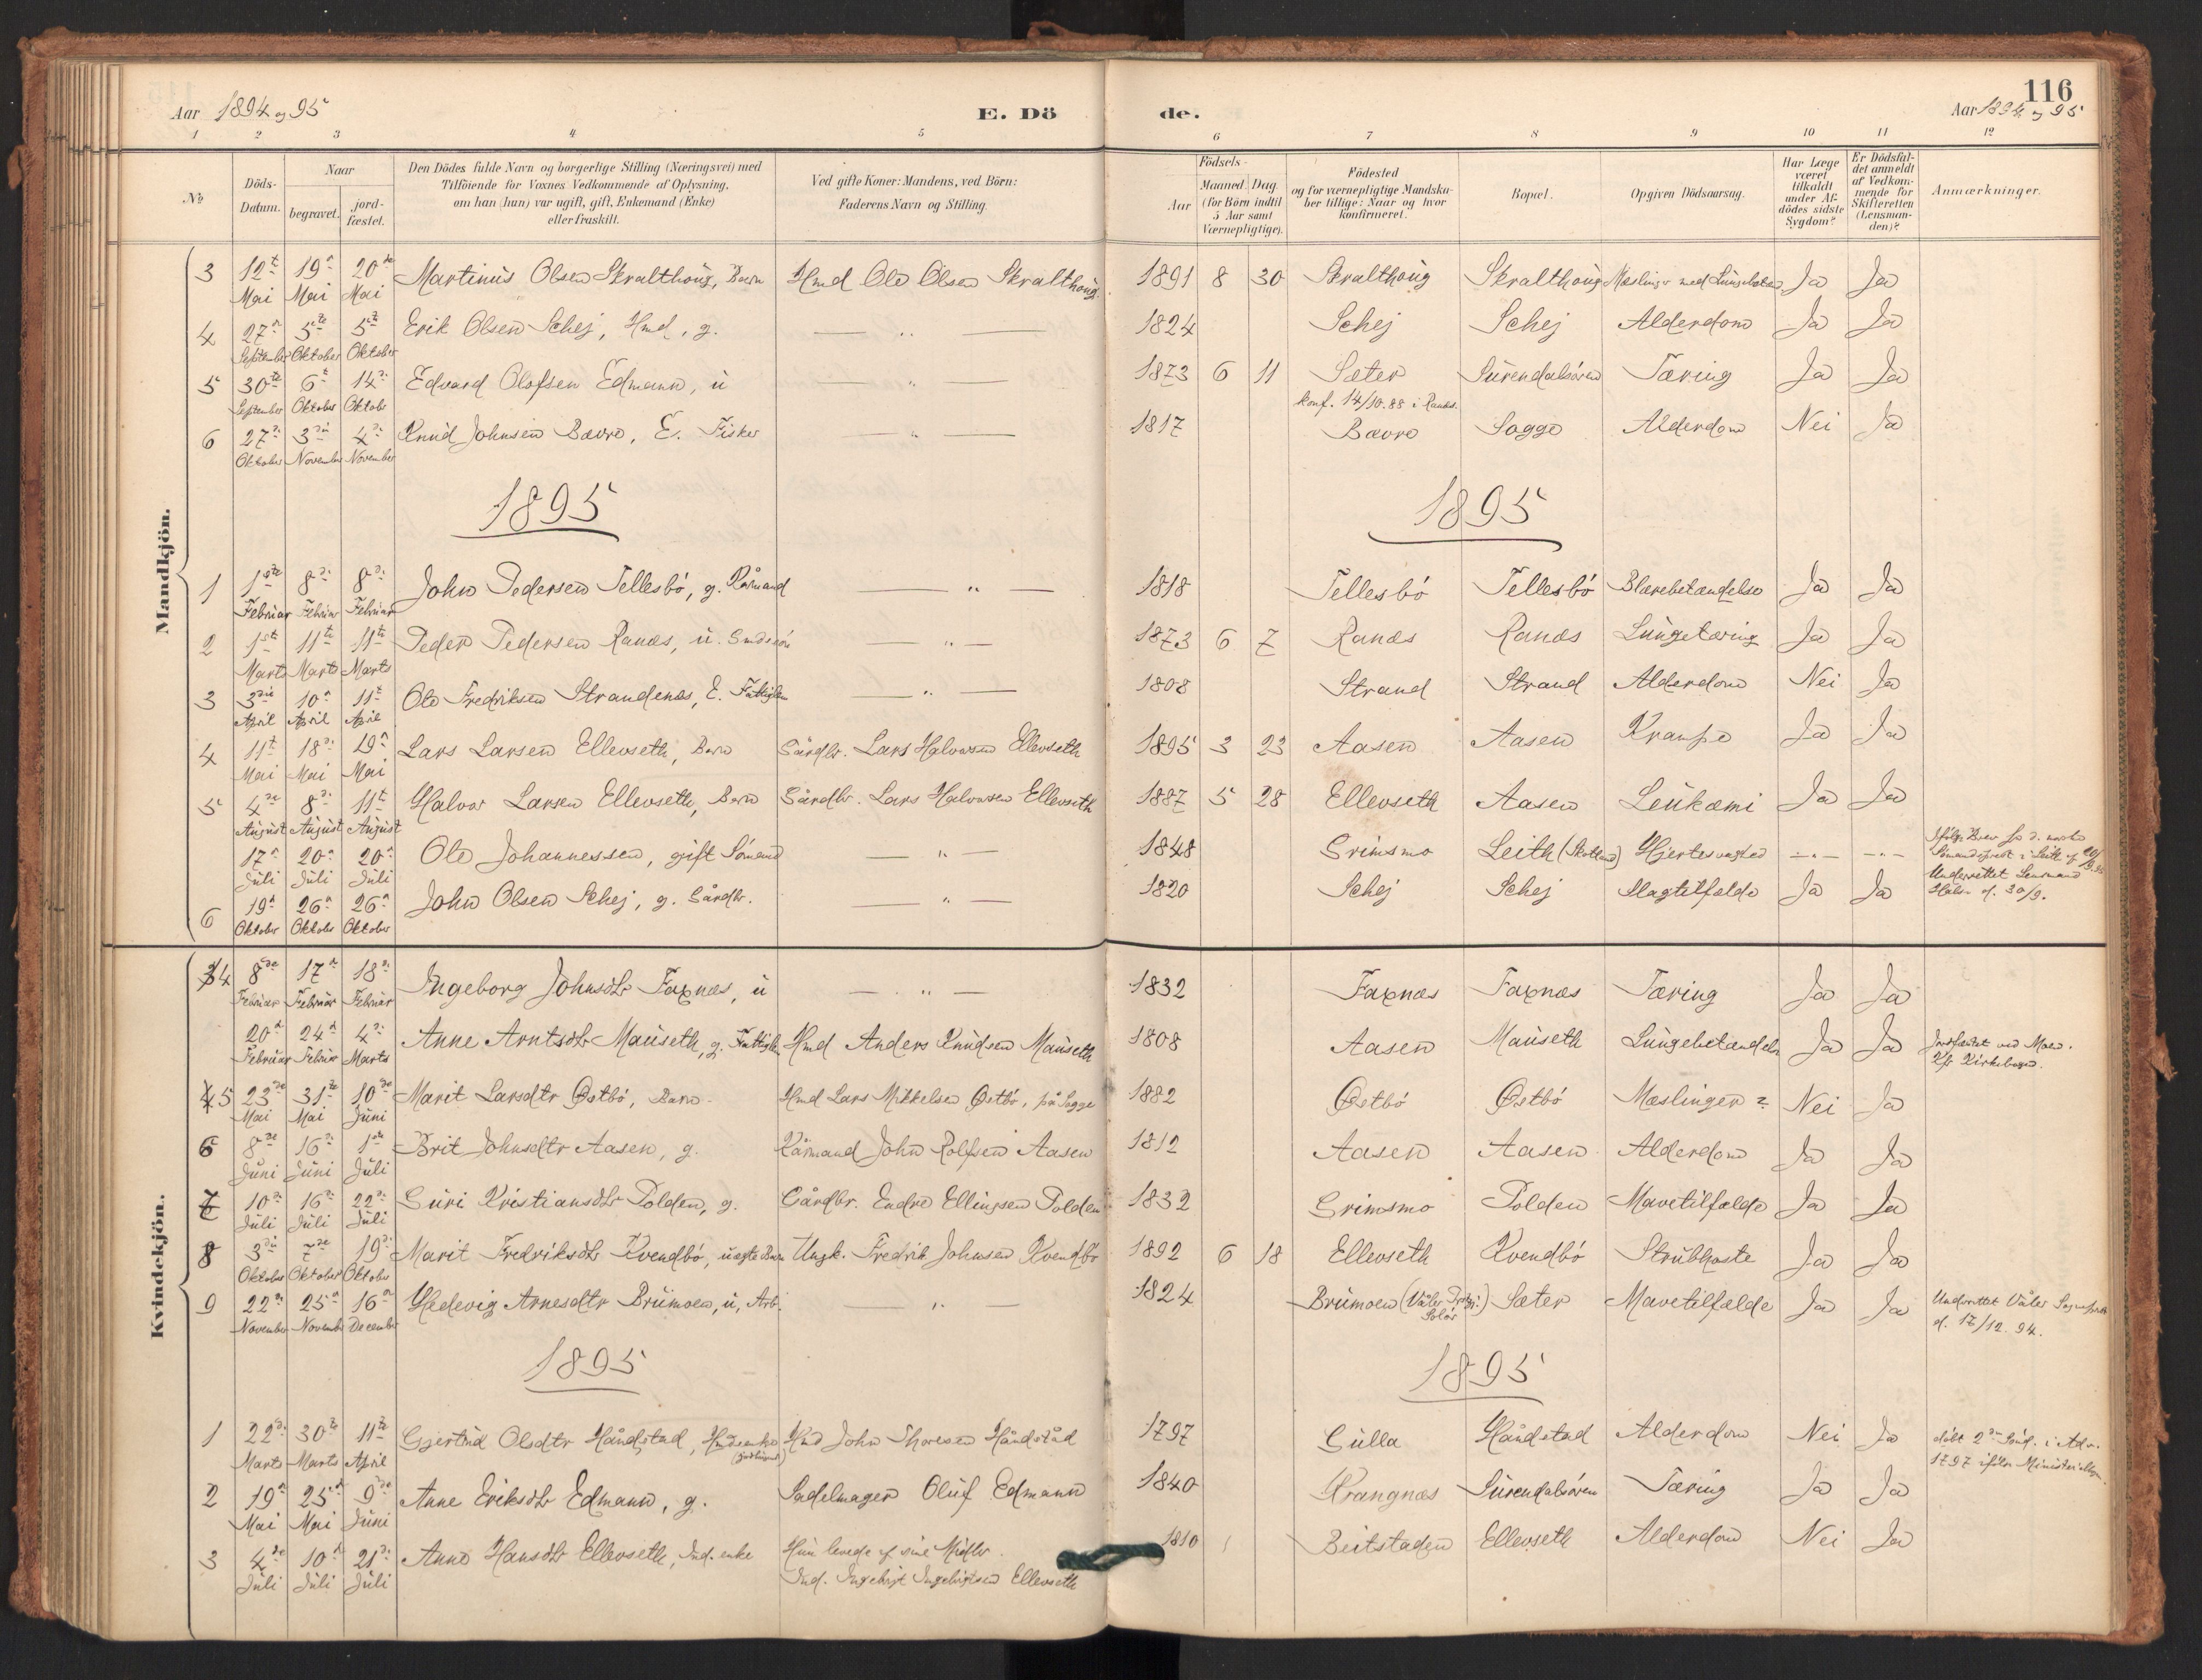 Aar 1894 og 95
E. Dö
de.
116
Aar 1894 og 95
1 2 3 4 5 6 7 8 9 10 11 12
No
Döds-Datum.
Naar
begravet.
jord-fæstet.
Den Dödes fulde Navn og borgerlige Stilling (Næringsvei) med
Tilföiende for Voxnes Vedkommende af Oplysning,
om han (hun) var ugift, gift, Enkemand (Enke)
eller fraskilt.
Ved gifte Koner: Mandens, ved Börn:
Faderens Navn og Stilling.
Födsels-
Aar
Maaned. Dag.
(for Börn indtil
5 Aar samt
Værnepligtige).
Födested
og for værnepligtige Mandska-
ber tillige: Naar og hvor
konfirmeret.
Bopæl.
Opgiven Dödsaarsag.
Har Læge
været
tilkaldt
under Af-
dödes sidste
Sygdom?
Er Dödsfal-
det anmeldt
af Vedkom-
mende for
Skifteretten
(Lensman-
den)?
Anmærkninger.
Mandkjön.
3 12t Mai 19n Mai 20de Mai Martinus Olsen Skralthoug, Barn Hmd Ole Olsen Skralthoug. 1891 8 30 Skralthoug Skralthoug Mæslinger med Lungebetænd. Ja Ja
4 27n September 5te Oktober 5te Oktober Erik Olsen Schej, Hmd, g. — " — 1824 Schej Schej Alderdom Ja Ja
5 30te September 6t Oktober 14de Oktobr Edvard Olofsen Edmann, u — " — 1873 6 11 Sæter Surendalsören Tæring Ja Ja
konf. 14/10.88 i Ranæs.
6 27de Oktober 3die November 4de November Knud Johnsen Bævre, E. Fisker — " — 1817 Bævre Sogge Alderdom Nei Ja
1895 1895
1 1ste Februar 8de Februar 8de Februar John Pedersen Tellesbó, g. Kårmand — " — 1818 Tellesbó Tellesbó Blærebetændelse Ja Ja
2 1st Marts 11te Marts 11te Marts Peder Pedersen Ranæs, u. — " — 1873 6 7 Ranæs Ranæs Lungetæring Ja Ja
3 3die April 10n April 11t April Ole Fredriksen Strandenæs, E. Fattiglem — " — 1808 Strand Strand Alderdom Nei Ja
4 11t Mai 18de Mai 19n Mai Lars Larsen Ellevseth, Barn Gårdbr. Lars Halvorsen Ellevseth 1895 3 23 Aasen Aasen Krampe Ja Ja
5 4de August 8de August 11t August Halvor Larsen Ellevseth, Barn Gårdbr. Lars Halvorsen Ellevseth 1887 5 28 Ellevseth Aasen Leukæmi Ja Ja
17n Juli 20n Juli 20n Juli Ole Johannessen, gift Sómand — " — 1848 Grimsmo Leith (Skotland) Hjertesvaghed — " — — " — Ifølge Brev fra d. norske
Sómandsprest i Leith af
6 19n Oktober 26n Oktobr 26n Oktober John Olsen Schej, g. Gårdbr. — " — 1820 Schej Schej Slagtilfælde Ja Ja Underrettet Lensmand
Halse d. 30/9.
Kvindekjön.
4 8de Februar 17n Februar 18de Februar Ingeborg Johnsdtr Faxnæs, u — " — 1832 Faxnæs Faxnæs Tæring Ja Ja
20n Februar 24n Februar 4de Marts Anne Arntsdtr Mauseth, g. Fattiglem Hmd Anders Knudsen Mauseth 1808 Aasen Mauseth Lungebetændelse Ja Ja Jordfæstet ved Moen.
Kfr Kirkebogen.
5 23de Mai 31te Mai 10de Juni Marit Larsdtr Østbó, Barn. Hmd Lars Mikkelsen Østbó, på Sogge 1882 Østbó Østbó Mæslinger ? Nei Ja
6 8de Juni 16de Juni 1ste Juli Brit Johnsdtr Aasen, g. Kårmand John Rolfsen Aasen 1812 Aasen Aasen Alderdom Ja Ja
7 10de Juli 16de Juli 22de Juli Guri Kristiansdtr Polden, g. Gårdbr. Endre Ellingsen Polden 1832 Grimsmo Polden Mavetilfælde Ja Ja
8 3die Oktober 7de Oktober 19de Oktober Marit Fredriksdtr Kvendbó, uægte Barn Ungk. Fredrik Johnsen Kvendbó 1892 6 18 Ellevseth Kvendbó Strubhoste Ja Ja
9 22n November 25n Novembr 16n December Hedevig Arnesdtr Brumoen, u, Arb. — " — 1824 Brumoen (Våler Prstgj. Solór) Sæter Mavetilfælde Ja Ja Underrettet Våler Sogneprest
d. 17/12.94.
1895 1895
1 22de Marts 30te Marts 11te April Gjertrud Olsdtr Håndstad, Hmdsenke Hmd John Thoresen Håndstad 1797 Gulla Håndstad Alderdom Nei Ja dóbt 2den Sónd. i Adv.
1797 ifólge Ministerialbogen.
2 19n Mai 25n Mai 9de Juni Anne Eriksdtr Edmann, g. Sadelmager Oluf Edmann 1840 Krangnæs Surendalsóren Tæring Ja Ja
3 4de Juli 10n Juli 21de Juli Anne Hansdtr Ellevseth, Ind. enke Hun levede af sine Midler.
Ind. Ingebrigt Ingebrigtsen Ellevseth 1810 Beitstaden Ellevseth Alderdom Nei Ja